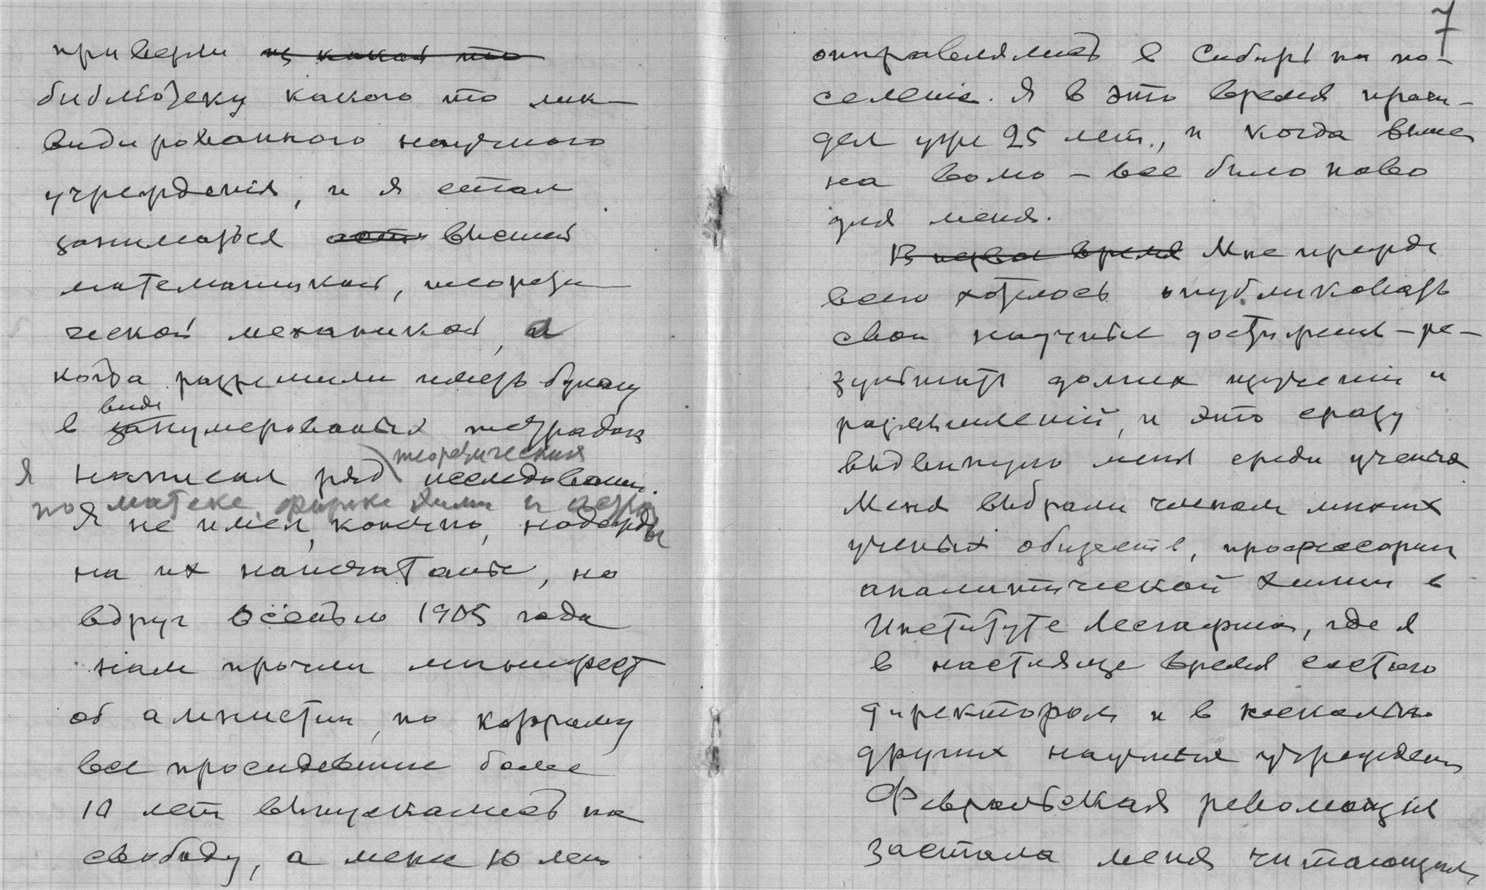 привезли ~~из какой то~~
библіотеку какого то лик-
видированного научного
учрежденія, и я стал
заниматься высшей
математикой, теорети-
ческой механикой, а
когда разрешили иметь бумагу
в виде занумерованных тетрадок
Я написал ряд теоретических исследований.
по матеке, физике химии и астро
Я не имел, конечно, надежды
на их напечатаніе, но
вдруг осенью 1905 года
нам прочли манифест
об амнистии, по которому
все просидевшие более
10 лет выпускались на
свободу, а менее 10 лет
7
отправлялись в Сибирь на по-
селеніе. Я в это время проси-
дел уже 25 лет, и когда вышел
на волю - все было ново
для меня.
~~В первое время~~ Мне прежде
всего хотелось опубликовать
свои научные достиженія - ре-
зультат долгих изучений и
размышленій, и это сразу
выдвинуло меня среди ученых
Меня выбрали членом многих
ученых обществ, профессором
аналитической химии в
Институте Лесгафта, где я
в настоящее время состою
директором и в нескольких
других научных учрежденіях
Февральская революция
застала меня читающим